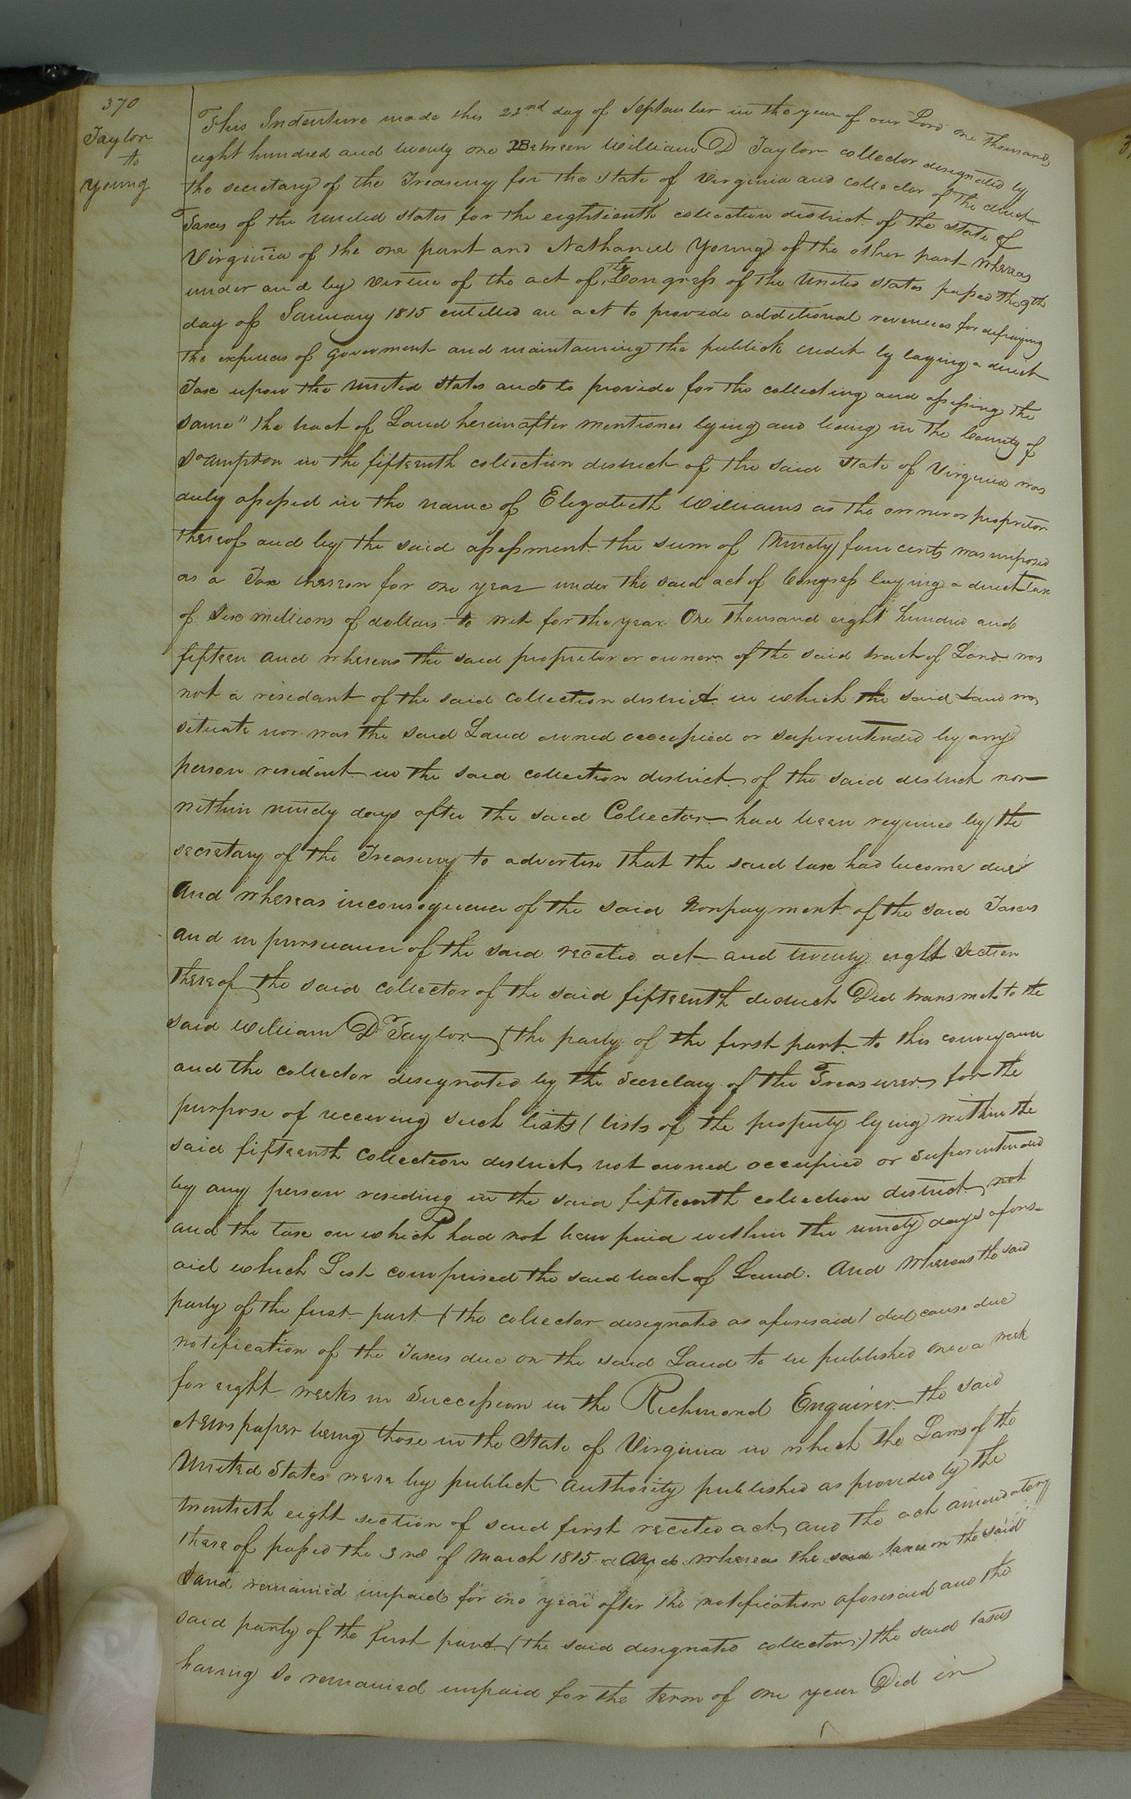 370
Taylor
to
Young
This Indenture made this 22nd day of September in the year of our Lord one thousand
eight hundred and twenty one Between William D Taylor collector designated by
the secretary of the Treasury for the state of Virginia and collector of the direct
Taxes of the United States for the eighteenth collection district of the state of
Virginia of the one part and Nathaniel Young of the other part Whereas
under and by virtue of the act of the Congress of the United States passed the 9th
day of January 1815 entitled an act to provide additional revenues for defraying
the expences of Goverment and maintaining the publick credit by laying a direct
Tax upon the United States and to provide for the collecting and assessing the
same" the tract of Land hereinafter mentioned lying and being in the County of
So ampton in the fifteenth collection district of the said State of Virginia was
duly assessed in the name of Elizabeth Williams as the owner or proprietor
thereof and by the said assessment the sum of Ninety four cents was imposed
as a Tax thereon for one year under the said act of Congress laying a direct tax
of Six millions of dollars to wit for the year One thousand eight hundred and
fifteen and whereas the said proprietor or owner of the said tract of Land was
not a resedant of the said collection district in which the said Land was
situate nor was the said Land owned occupied or superintended by any
person resident in the said collection district of the said district nor
within ninety days after the said Collector had been required by the
secretary of the Treasury to advertise that the said tax had become due
And whereas inconsequence of the said Nonpayment of the said Taxes
and in pursuance of the said recited act and twenty eight Section
thereof the said collector of the said fifteenth district Did transmit to the
said William D Taylor (the party of the first part to this conveyance
and the collector designated by the Secretary of the Treasurer for the
purpose of receiving such lists ( lists of the property lying within the
said fifteenth collection district not owned occupied or Superintended
by any person residing in the said fifteenth collection district not
and the tax on which had not been paid within the ninety days afores-
aid which List comprised the said tract of Land. And Whereas the said
party of the first part ( the collector designated as aforesaid ) did cause due
notification of the Taxes due on the said Land to be published once a week
for eight weeks in Succession in the Richmond Enquirer the said
Newspaper being those in the State of Virginia in which the Laws of the
United States were by publick authority published as provided by the
twentieth eight section of said first recited act, and the act amendatory
thereof passed the 3nd of March 1815 And whereas the said taxes on the said
Land remained unpaid for one year after the notification aforesaid and the
said party of the first part (the said designated collector;) the said taxes
having so remained unpaid for the term of one year Did in